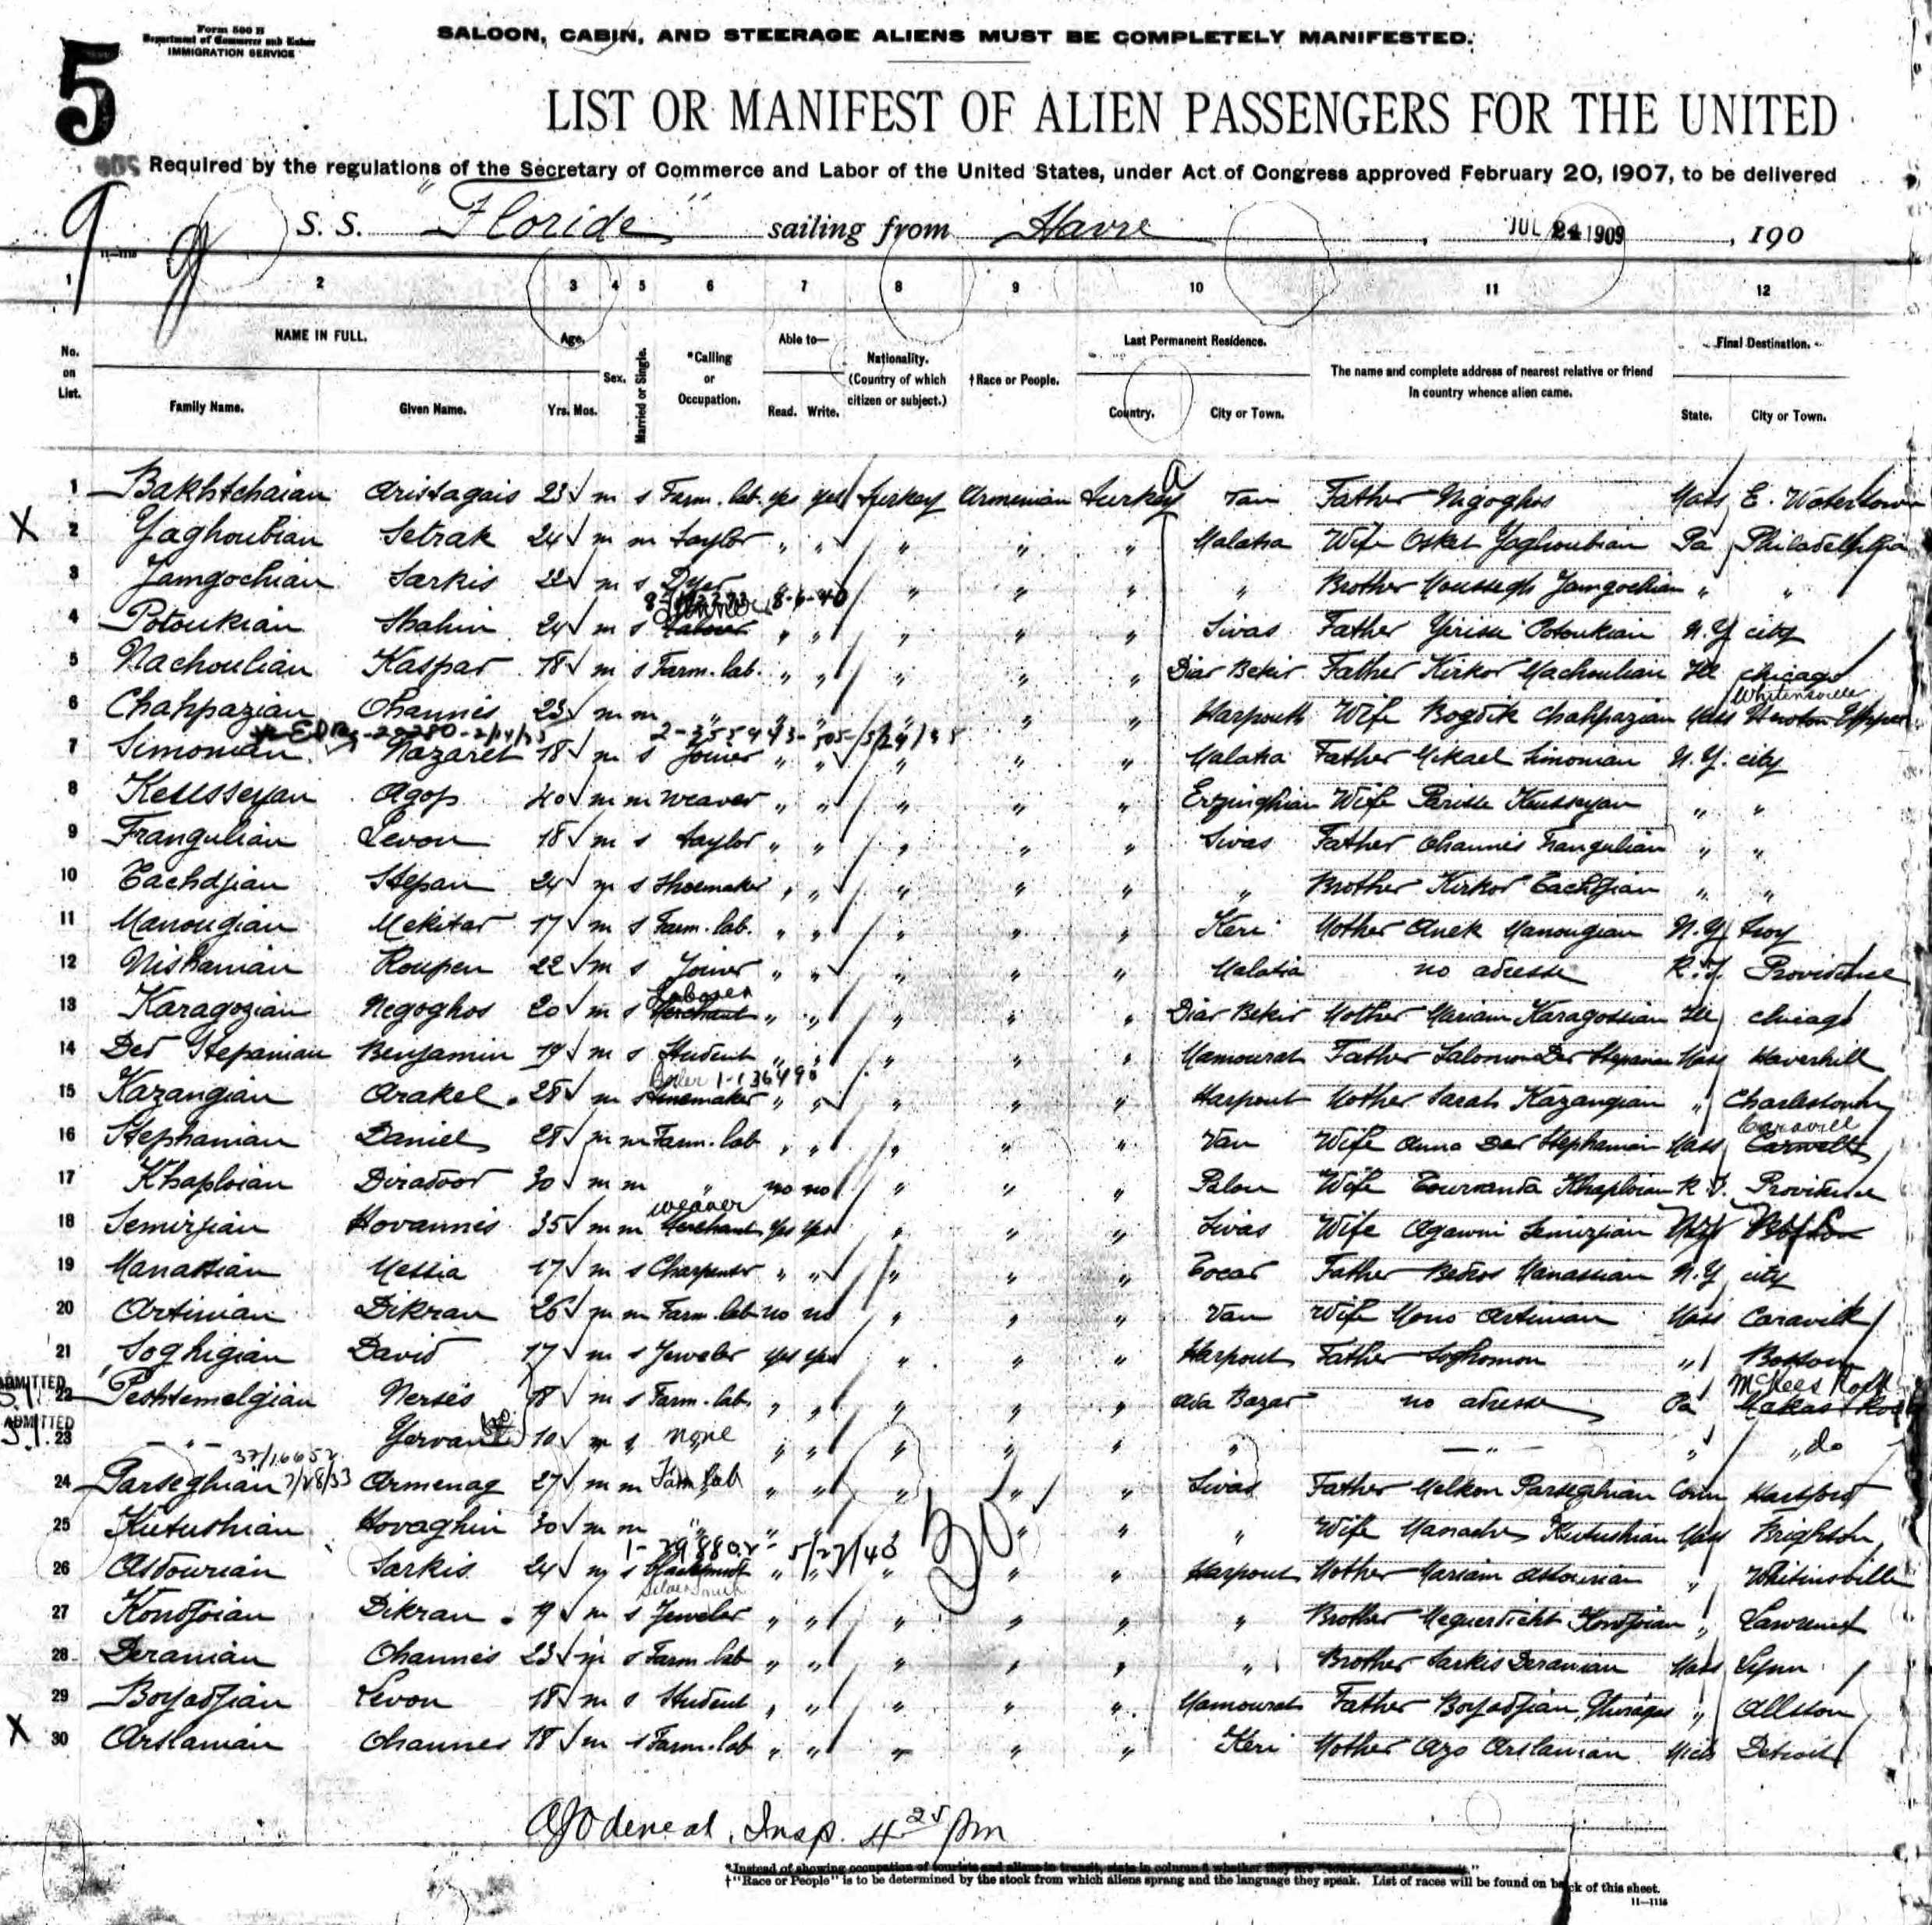 5
Form 500 B
Department of Commerce and Labor
IMMIGRATION SERVICE
SALOON, CABIN, AND STEERAGE ALIENS MUST BE COMPLETELY MANIFESTED.
LIST OR MANIFEST OF ALIEN PASSENGERS FOR THE UNITED
Required by the regulations of the Secretary of Commerce and Labor of the United States, under Act of Congress approved February 20, 1907, to be delivered
S. S. "Floride" sailing from Havre, JUL 24 1909, 190
1 2 3 4 5 6 7 8 9 10 11 12
No. on List. NAME IN FULL. Family Name. Given Name. Age. Yrs. Mos. Sex. Married or Single. *Calling or Occupation. Able to— Read. Write. Nationality. (Country of which citizen or subject.) †Race or People. Last Permanent Residence. Country. City or Town. The name and complete address of nearest relative or friend in country whence alien came. Final Destination. State. City or Town.
1 Bakhtchaian Aristagais 23 m s Farm. lab. yes yes Turkey Armenian Turkey Van Father Nigoghos Mass E. Watertown
X 2 Yaghoubian Setrak 24 m m Taylor " " " " " Malatia Wife Osket Yaghoubian Pa Philadelphia
3 Jamgochian Sarkis 22 m s Dyer 8-6-40 " " " " Brother Moussegh Jamgochian " "
4 Potoukian Shahin 24 m s Labour " " " " " Sivas Father Yirisi Potoukian N.Y. city
5 Nachoulian Kaspar 18 m s Farm. lab. " " " " " Diar Bekir Father Kirkor Nachoulian Ill chicago
6 Chahpazian Ohannes 23 m m " " " " " " Harpouth Wife Bogdik Chahpazian Mass Whitinsville
7 Simonian Nazaret 18 m s Joiner " " " " " Malatia Father Mikael Simonian N.Y. city
8 Keusseyan Agop 40 m m weaver " " " " " Erzinghian Wife Parisse Keusseyan " "
9 Frangulian Levon 18 m s Taylor " " " " " Sivas Father Ohannes Frangulian " "
10 Eachdjian Stepan 24 m s Shoemaker " " " " " " Brother Kirkor Eachdjian " "
11 Manougian Mekitar 17 m s Farm. lab. " " " " " Keri Mother Anek Manougian N.Y. Troy
12 Nishanian Roupen 22 m s Joiner " " " " " Malatia no adresse R.I. Providence
13 Karagozian Negoghos 20 m s Laborer Merchant " " " " " Diar Bekir Mother Mariam Karagossian Ill chicago
14 Der Stepanian Benjamin 19 m s Student " " " " " Mamourat Father Salomon Der Stepanian Mass Haverhill
15 Kazangian Arakel 28 m s 1-136490 Shoemaker " " " " " Harpout Mother Sarah Kazangian " Charlestown
16 Stephanian Daniel 28 m m Farm. lab " " " " " Van Wife Anna Der Stephanian Mass Caraville
17 Khaploian Diradoor 30 m m " no no " " " Palou Wife Tourvanda Khaploian R.I. Providence
18 Semirjian Hovannes 35 m m weaver Merchant yes yes " " " Sivas Wife Agawni Semirjian
19 Manassian Messia 17 m s Charpenter " " " " " Tocar Father Bedros Manassian N.Y. city
20 Artinian Dikran 26 m m Farm. lab no no " " " Van Wife Mono Artinian Mass Caravill
21 Soghigian David 17 m s Jeweler yes yes " " " Harpout Father Soghomon " Boston
ADMITTED 22 Peshtemelgian Nerses 18 m s Farm. lab. " " " " " Ada Bazar no adresse Pa McKees Rock
ADMITTED 23 - " - Yervant 10 m s none " " " " " " - " - " " do
37/16652 7/28/33
24 Parseghian Armenag 27 m m Farm lab " " " " " Sivas Father Melkon Parseghian Conn Hartford
25 Kutushian Hovaghin 30 m m " " " " " " " Wife Manache Kutushian Mass Brighton
5/27/40
26 Asdourian Sarkis 24 m s Blacksmith " " " " " Harpout Mother Mariam Asdourian " Whitinsville
27 Kondjoian Dikran 19 m s Silversmith Jeweler " " " " " " Brother Meguerditcht Kondjoian " Lawrence
28 Deranian Ohannes 23 m s Farm lab " " " " " " Brother Sarkis Deranian Mass Lynn
29 Boyadjian Levon 18 m s Student " " " " " Mamourat Father Boyadjian " Allston
X 30 Arslanian Ohannes 18 m s Farm. lab " " " " " Keri Mother Azo Arslanian Mich Detroit
30
Insp. 4 25 pm
*Instead of showing occupation of tourists and aliens in transit, state in column 6 whether they are
†"Race or People" is to be determined by the stock from which aliens sprang and the language they speak. List of races will be found on back of this sheet.
11—1116